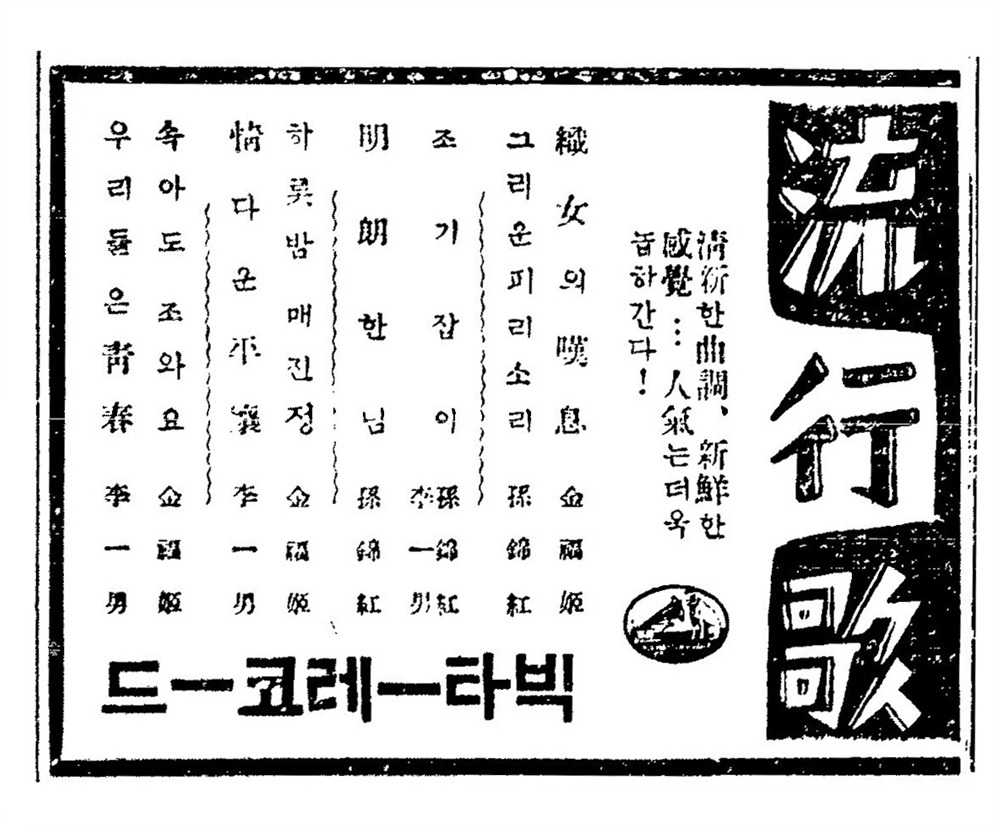 流行歌
淸新한曲調、新鮮한
感覺…人氣는더욱
놉하간다!
織女의嘆息 金福姬
그리운피리소리 孫錦紅
조기잡이 孫錦紅 李一男
明朗한님 孫錦紅
하룻밤매진정 金福姬
情다군平壤 李一男
속아도조와요 金福姬
우리들은靑春 李一男
빅타ー레코ー드